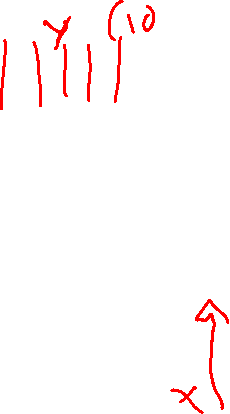 y (10
| | | | |
x